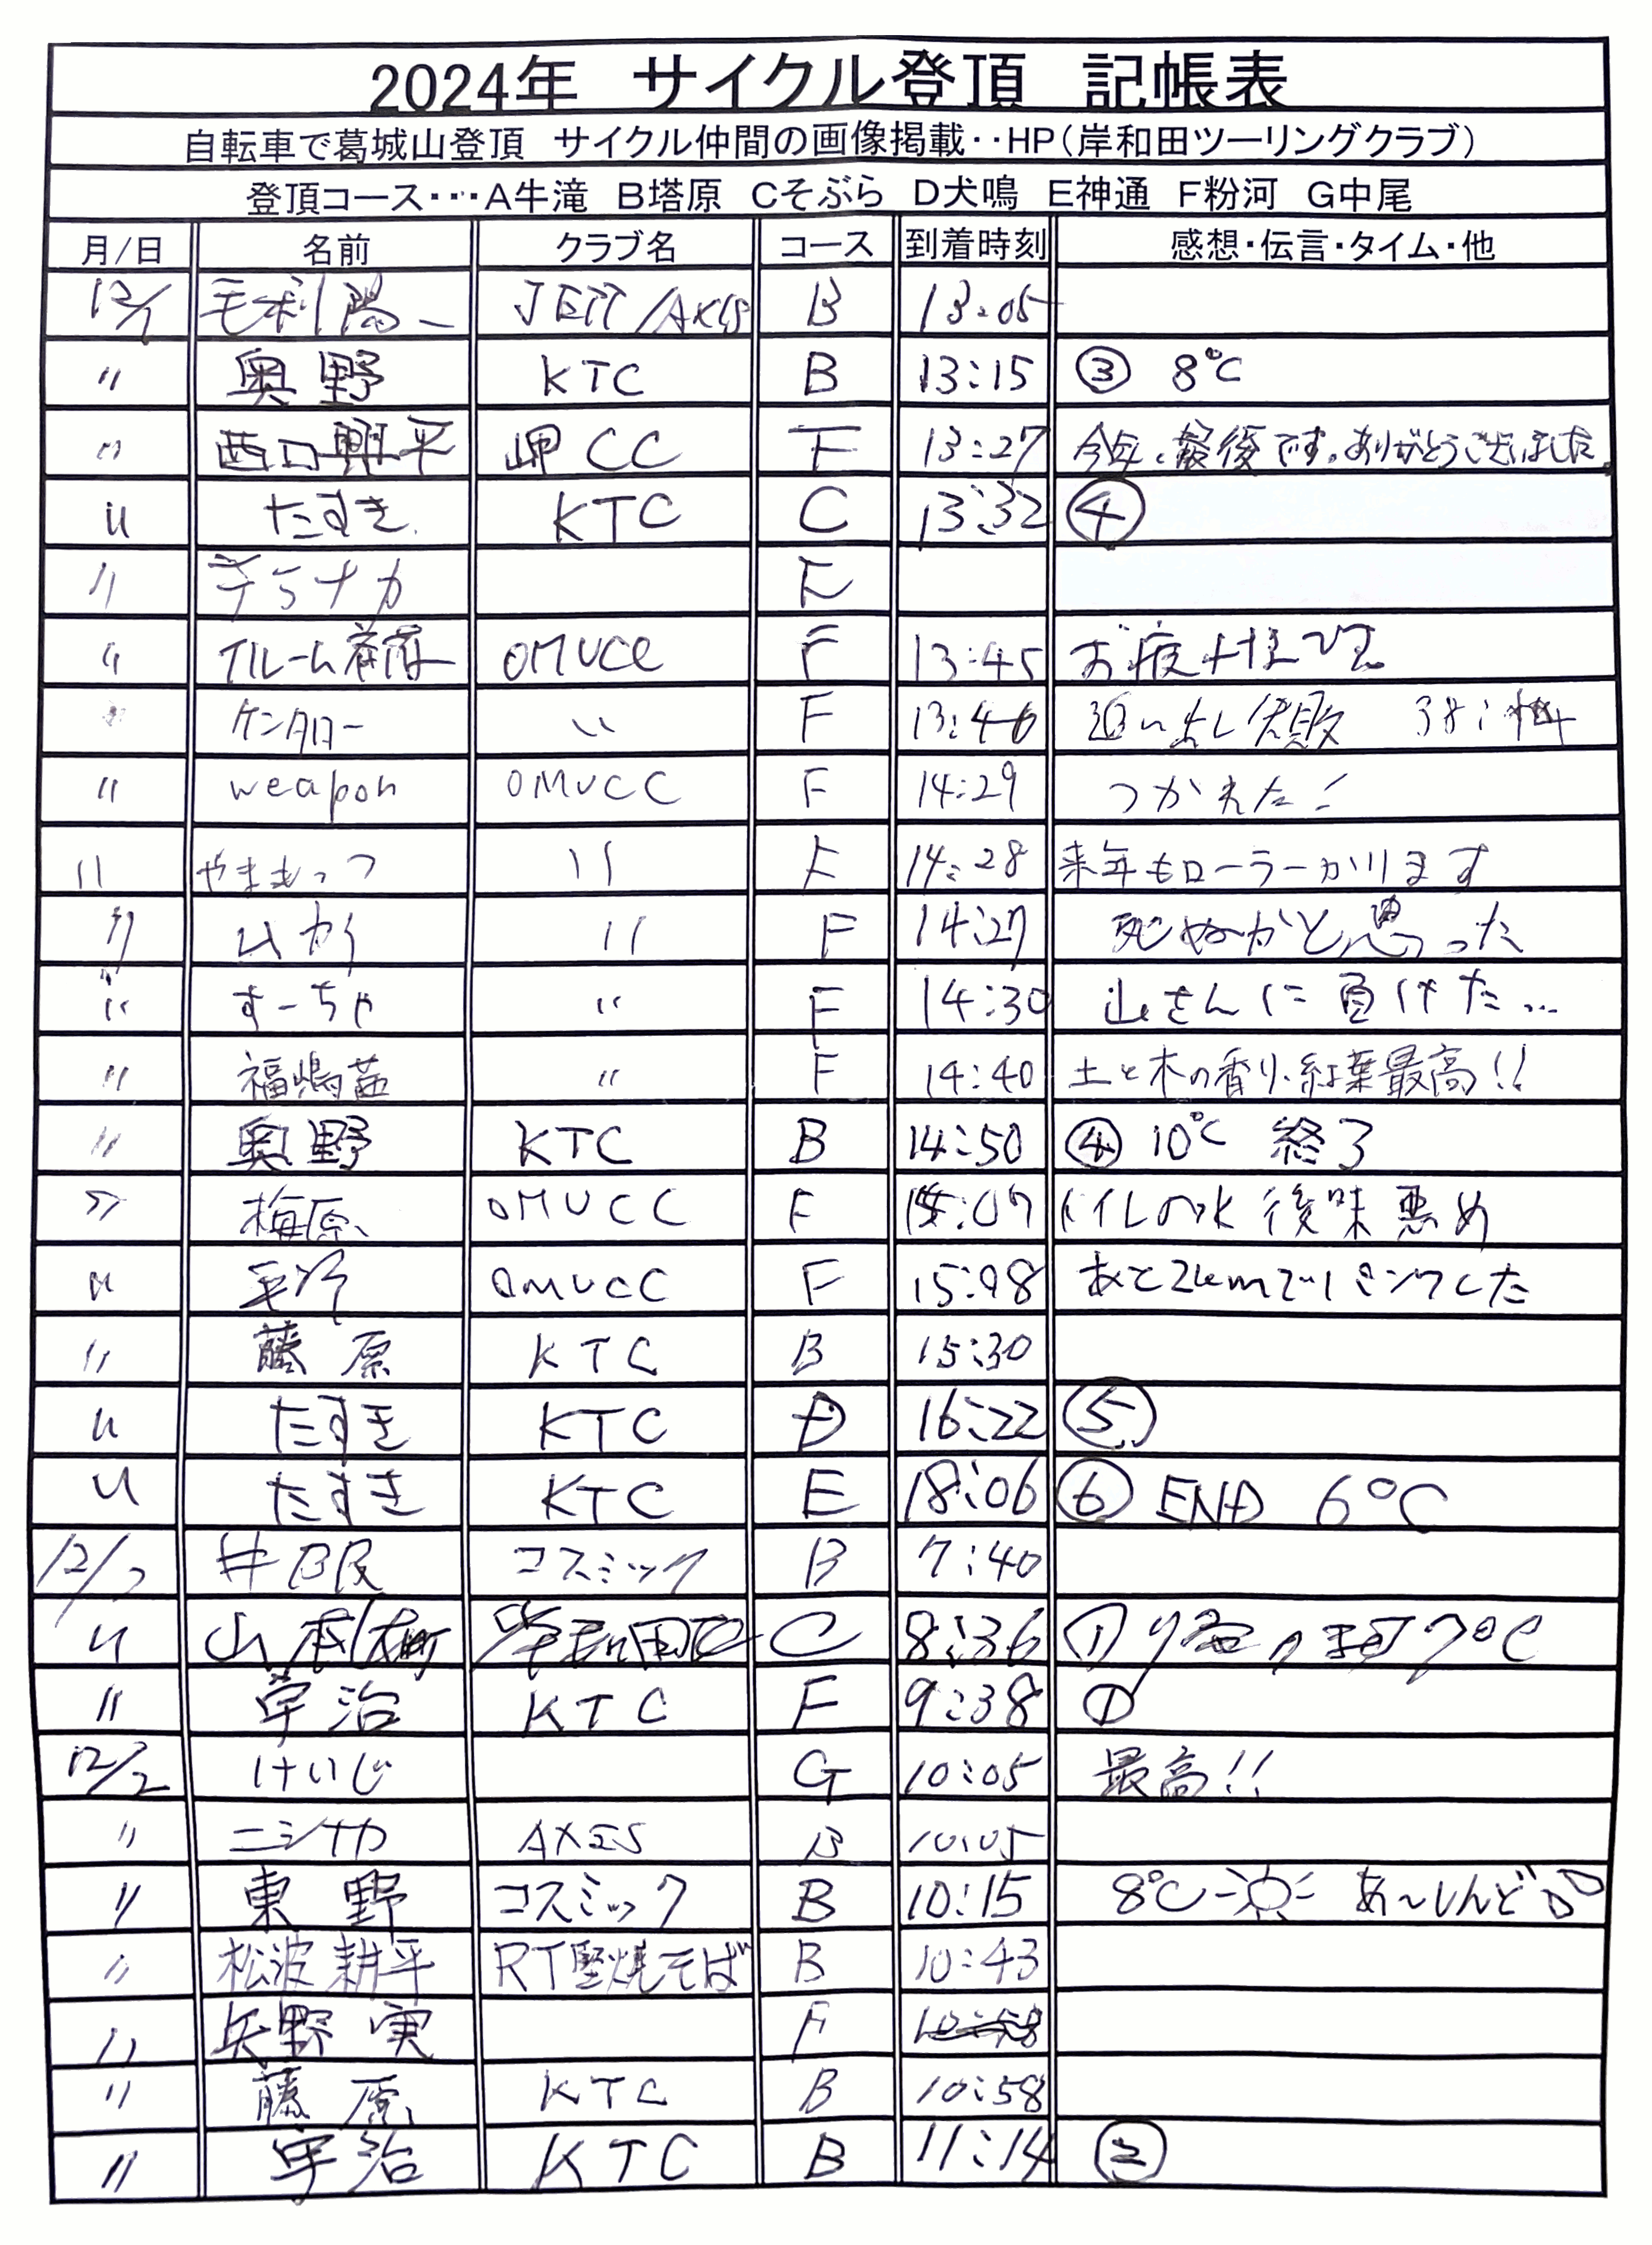 2024年 サイクル登頂 記帳表
自転車で葛城山登頂 サイクル仲間の画像掲載‥HP(岸和田ツーリングクラブ)
登頂コース･･･A牛滝 B塔原 Cそぶら D犬鳴 E神通 F粉河 G中尾
月/日 名前 クラブ名 コース 到着時刻 感想・伝言・タイム・他
12/1 毛利陽一 JETT/AXIS B 13:05
〃 奥野 KTC B 13:15 ③ 8℃
〃 西口興平 岬CC F 13:27 今年、最後です。ありがとうございました。
〃 たすき KTC C 13:32 ④
〃 テラナカ F
〃 OMUCC F 13:45 お疲れ様です
〃 ケンタロー 〃 F 13:46 追い出し失敗
〃 weapon OMUCC F 14:29 つかれた!
〃 やまもっつ 〃 F 14:28 来年もローラーかります
〃 〃 F 14:27 死ぬかと思った
〃 すーちゃ 〃 F 14:30 山さんに負けた…
〃 福嶋 〃 F 14:40 土と木の香り、紅葉最高!!
〃 奥野 KTC B 14:50 ④ 10℃ 終了
〃 梅原 OMUCC F 15:07 トイレの水 後味悪め
〃 OMUCC F 15:08 あと2kmで
〃 藤原 KTC B 15:30
〃 たすき KTC D 16:22 ⑤
〃 たすき KTC E 18:06 ⑥ END 6℃
12/2 井 コスミック B 7:40
〃 山本 C 8:36 ① 7℃
〃 宇治 KTC F 9:38 ①
12/2 けいじ G 10:05 最高!!
〃 ニシナカ AXIS B 10:05
〃 東野 コスミック B 10:15 8℃ あ〜しんど
〃 松波耕平 RT堅焼そば B 10:43
〃 矢野実 F 10:58
〃 藤原 KTC B 10:58
〃 宇治 KTC B 11:14 ②